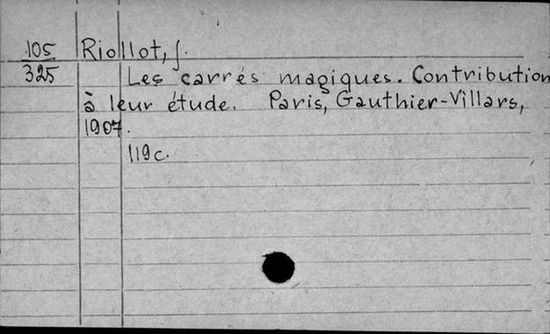 105 Riollot, J.
325 Les carrés magiques. Contribution
à leur étude. Paris, Gauthier-Villars,
1907.
119 c.